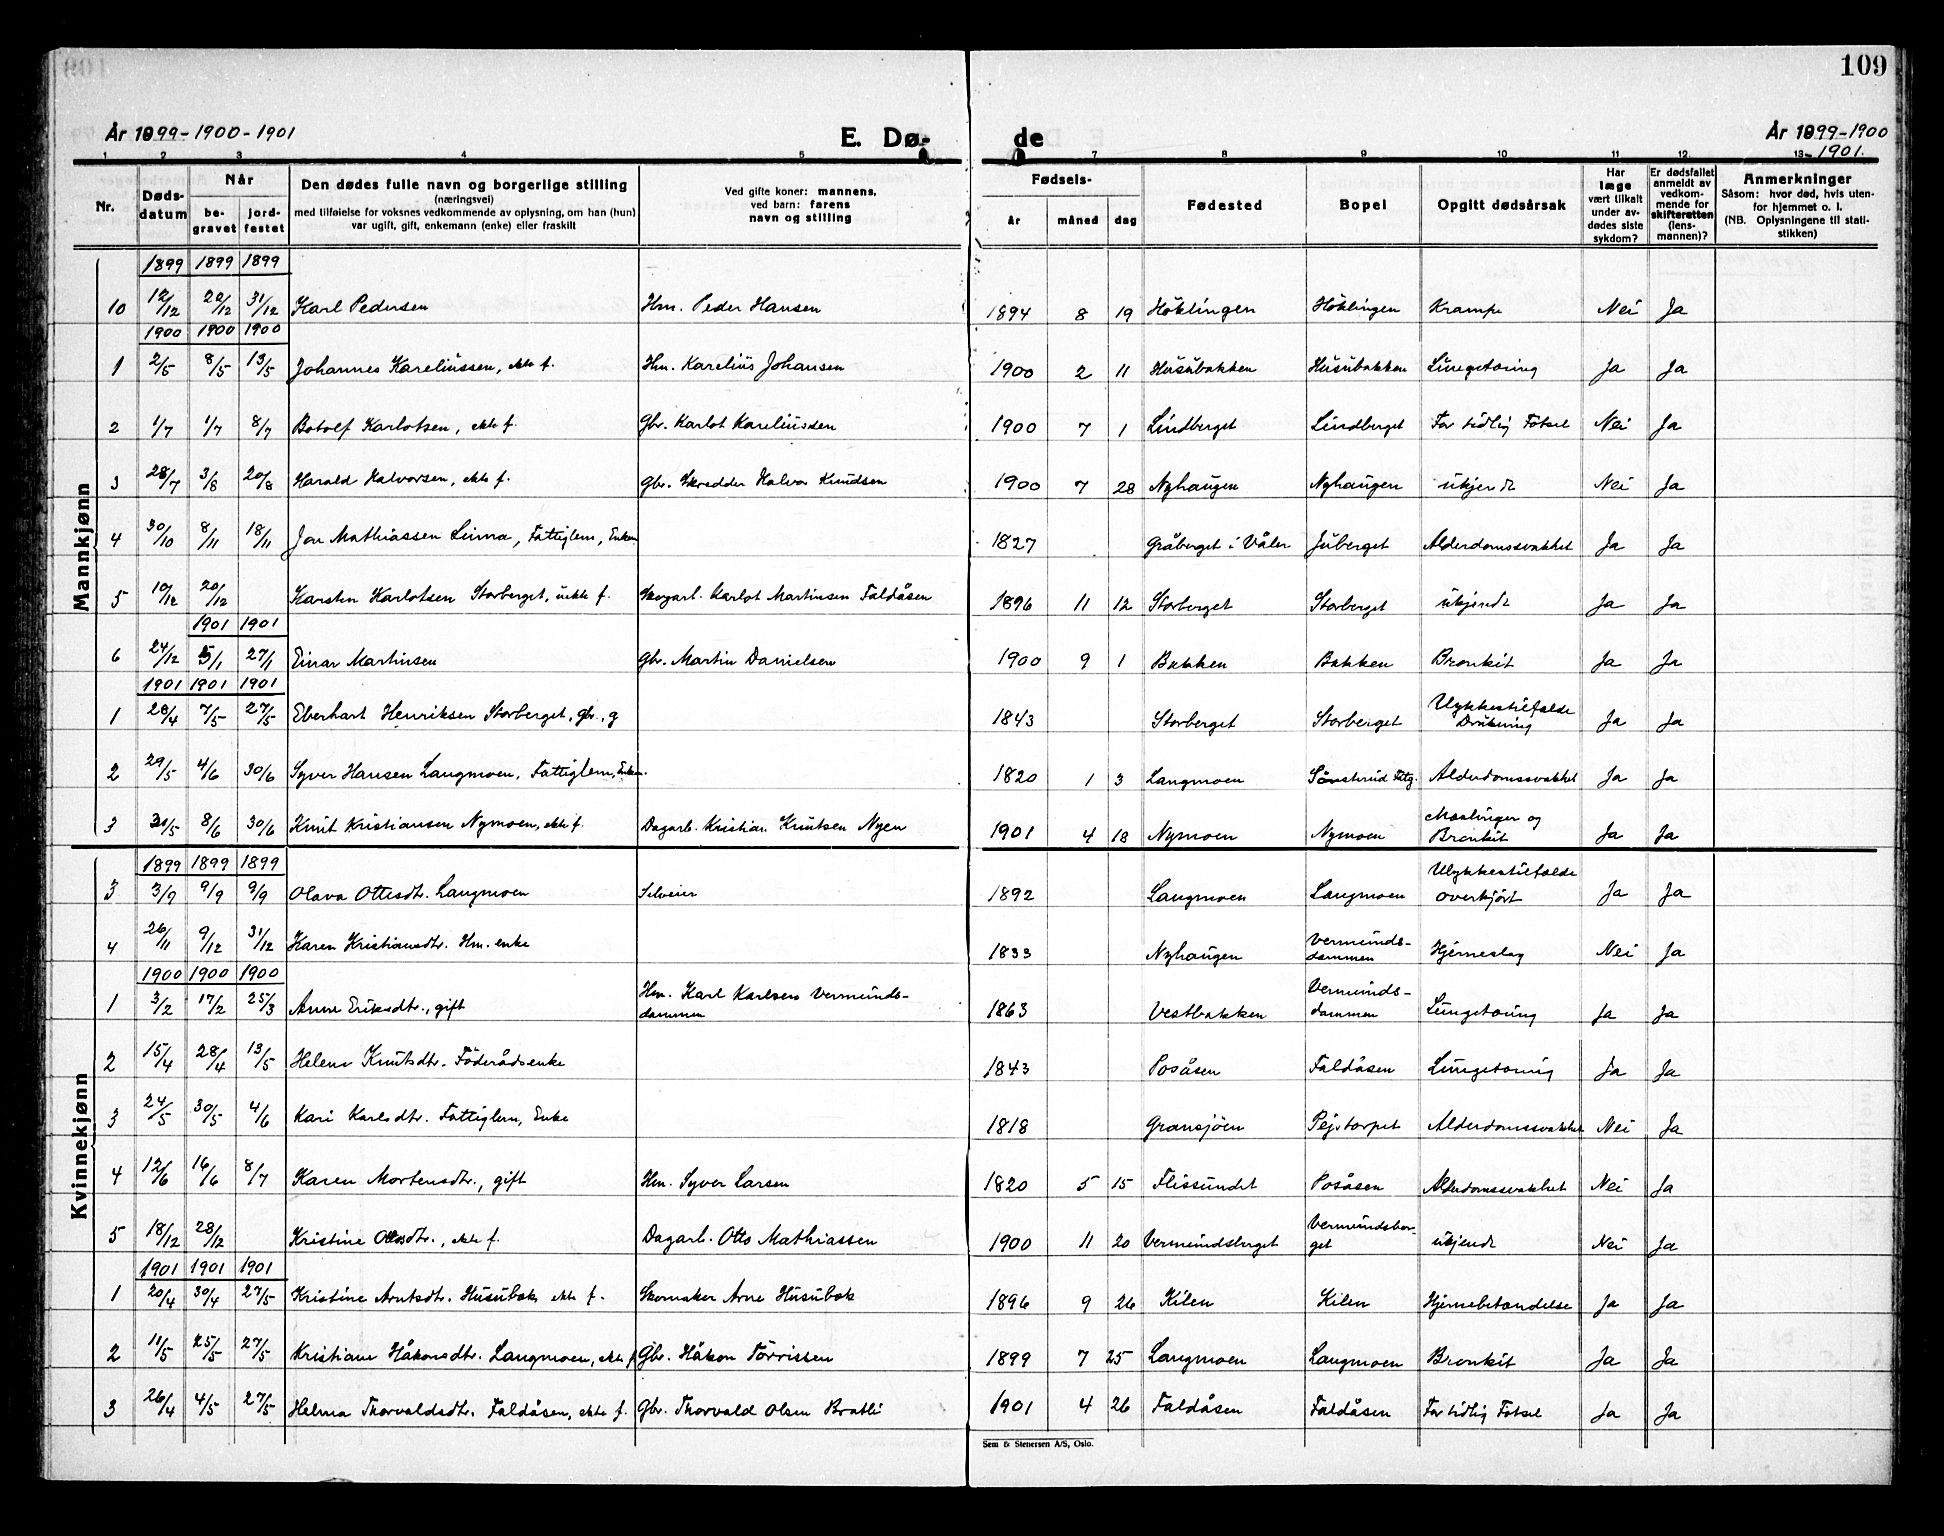 109
År 1899-1900-1901
E. Dø-
de
År 1899-1900
-1901.
1 2 3 4 5 7 8 9 10 11 12 13
Nr. Døds-datum Når be-gravet jord-festet Den dødes fulle navn og borgerlige stilling (næringsvei) med tilføielse for voksnes vedkommende av oplysning, om han (hun) var ugift, gift, enkemann (enke) eller fraskilt Ved gifte koner: mannens, ved barn: farens navn og stilling Fødsels- år måned dag Fødested Bopel Opgitt dødsårsak Har læge vært tilkalt under av-dødes siste sykdom? Er dødsfallet anmeldt av vedkom-mende for skifteretten (lens-mannen)? Anmerkninger Såsom: hvor død, hvis uten-for hjemmet o. l. (NB. Oplysningene til stati-stikken)
Mannkjønn
1899 1899 1899
10 12/12 20/12 31/12 Karl Pedersen Hm. Peder Hansen 1894 8 19 Höklingen Höklingen Krampe Nei Ja
1900 1900 1900
1 2/5 8/5 13/5 Johannes Kareliussen, ekte f. Hm. Karelius Johansen 1900 2 11 Husubakken Husubakken Lungetæring Ja Ja
2 1/7 1/7 8/7 Botolf Karlotsen, ekte f. Gbr. Karlot Kareliussen 1900 7 1 Lindberget Lindberget For tidlig Fötsel Nei Ja
3 28/7 3/8 20/8 Harald Halvorsen, ekte f. Gbr. Skredder Halvor Knudsen 1900 7 28 Nyhaugen Nyhaugen ukjendt Nei Ja
4 30/10 8/11 18/11 Jon Mathiassen Fattiglem, Enkem 1827 Gråberget i Våler Juberget Alderdomssvakhet Ja Ja
5 10/12 20/12 Karsten Karlotsen Storberget, uekte f. Skogarb. Karlot Martinsen Faldåsen 1896 11 12 Storberget Storberget ukjendt Ja Ja
1901 1901
6 24/12 5/1 27/1 Einar Martinsen Gbr. Martin Danielsen 1900 9 1 Bakken Bakken Bronkit Ja Ja
1901 1901 1901
1 28/4 7/5 27/5 Eberhart Henriksen Storberget, gbr., g 1843 Storberget Storberget Ulykkestilfælde Drukning Ja Ja
2 29/5 4/6 30/6 Syver Hansen Langmoen, Fattiglem, Enkem. 1820 1 3 Langmoen Sönsterud Fatg. Alderdomssvakhet Ja Ja
3 31/5 8/6 30/6 Knut Kristiansen Nymoen, ekte f. Dagarb. Kristian Knutsen Nyen 1901 4 18 Nymoen Nymoen Mæslinger og Bronkit Ja Ja
Kvinnekjønn
1899 1899 1899
3 3/9 9/9 9/9 Olava Ottesdtr. Langmoen Selveier 1892 Langmoen Langmoen Ulykkestilfælde overkjört Ja Ja
4 26/11 9/12 31/12 Karen Kristiansdtr. Hm. enke 1833 Nyhaugen Vermunds-dammen Hjerneslag Nei Ja
1900 1900 1900
1 3/2 17/2 25/3 Anne Eriksdtr., gift Hm. Karl Karlsen Vermunds-dammen 1863 Vestbakken Vermunds-dammen Lungetæring Ja Ja
2 15/4 28/4 13/5 Helene Knutsdtr. Föderådsenke 1843 Posåsen Faldåsen Lungetæring Ja Ja
3 24/5 30/5 4/6 Kari Karlsdtr. Fattiglem, Enke 1818 Gransjöen Pejstorpet Alderdomssvakhet Nei Ja
4 12/6 16/6 8/7 Karen Mortensdtr., gift Hm. Syver Larsen 1820 5 15 Flissundet Posåsen Alderdomssvakhet Nei Ja
5 18/12 28/12 Kristine Ottosdtr., ekte f. Dagarb. Otto Mathiassen 1900 11 20 Vermundsberget Vermundsber-get ukjendt Nei Ja
1901 1901 1901
1 20/4 30/4 27/5 Kristine Arntsdtr. Husubak, ekte f. Skomaker Arne Husubak 1896 9 26 Kilen Kilen Hjernebetændelse Ja Ja
2 11/5 25/5 27/5 Kristiane Håkonsdtr. Langmoen, ekte f Gbr. Håkon Törrissen 1899 7 25 Langmoen Langmoen Bronkit Ja Ja
3 26/4 4/5 27/5 Helma Thorvaldsdtr. Faldåsen, ekte f. Gbr. Thorvald Olsen Bratli 1901 4 26 Faldåsen Faldåsen For tidlig Fötsel Ja Ja
Sem & Stenersen A/S, Oslo.